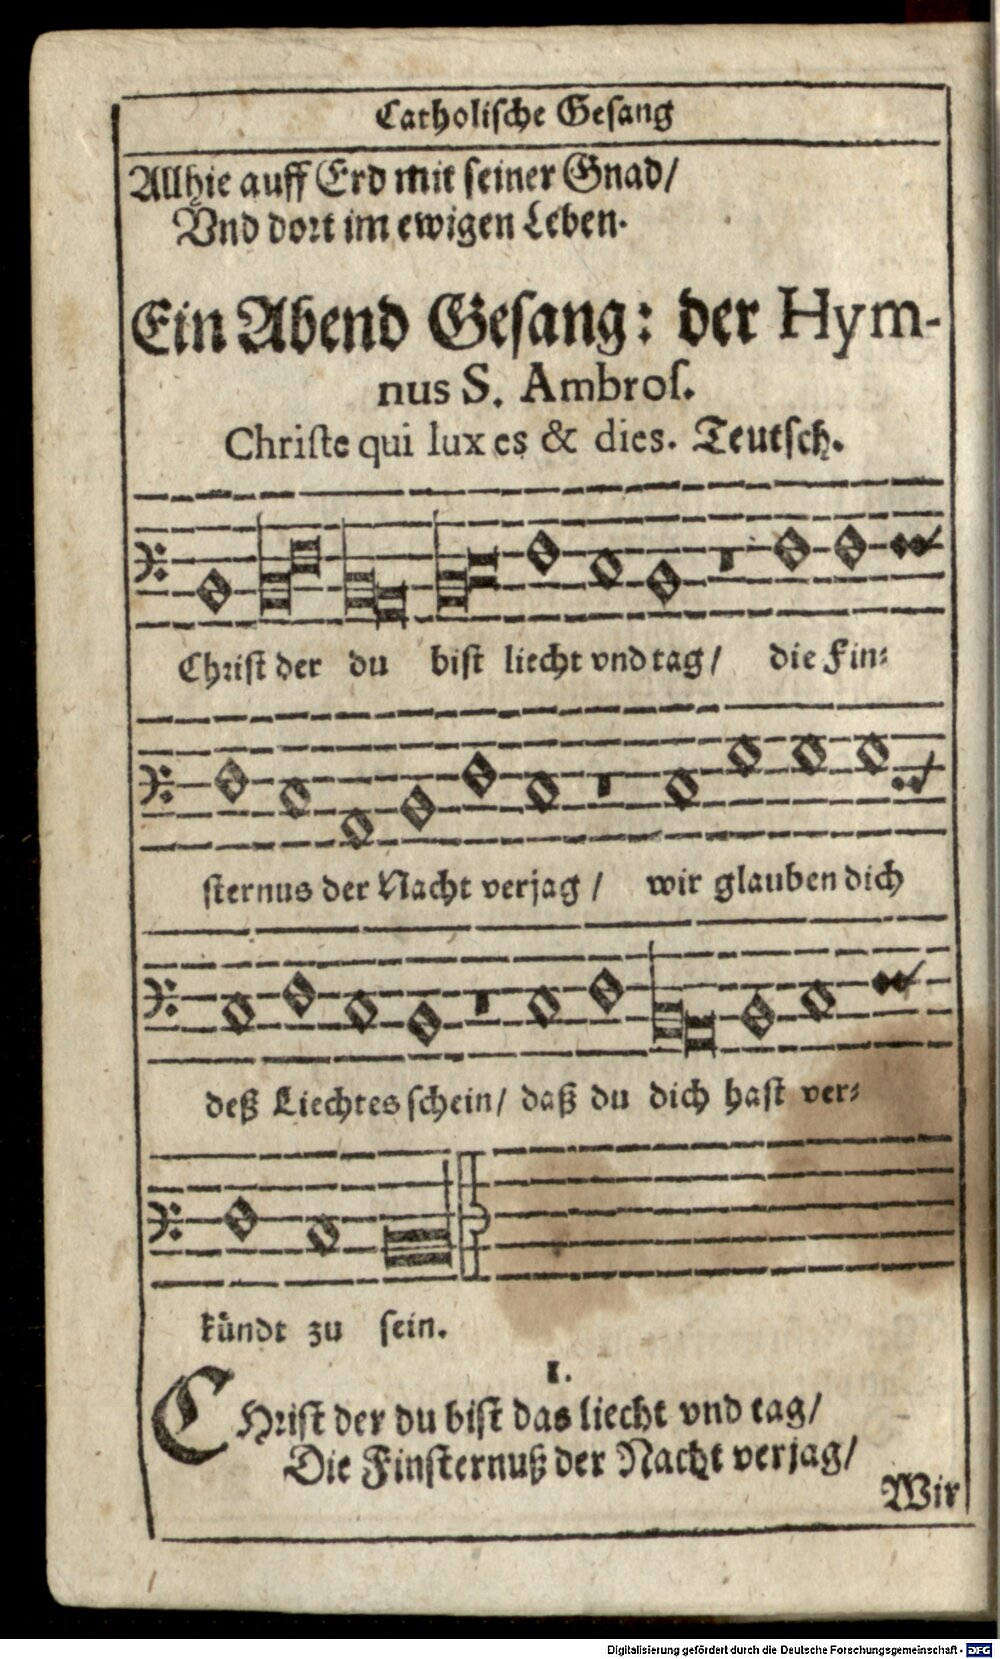 Catholische Gesang
Allhie auff Erd mit seiner Gnad/
Vnd dort im ewigen Leben.
Ein Abend Gesang: der Hym-
nus S. Ambros.
Christe qui lux es & dies. Teutsch.
Christ der du bist liecht vnd tag/ die Fin-
sternus der Nacht verjag/ wir glauben dich
deß Liechtes schein/ daß du dich hast ver-
kündt zu sein.
I.
CHrist der du bist das liecht vnd tag/
Die Finsternuß der Nacht verjag/
Wir
Digitalisierung gefördert durch die Deutsche Forschungsgemeinschaft - DFG